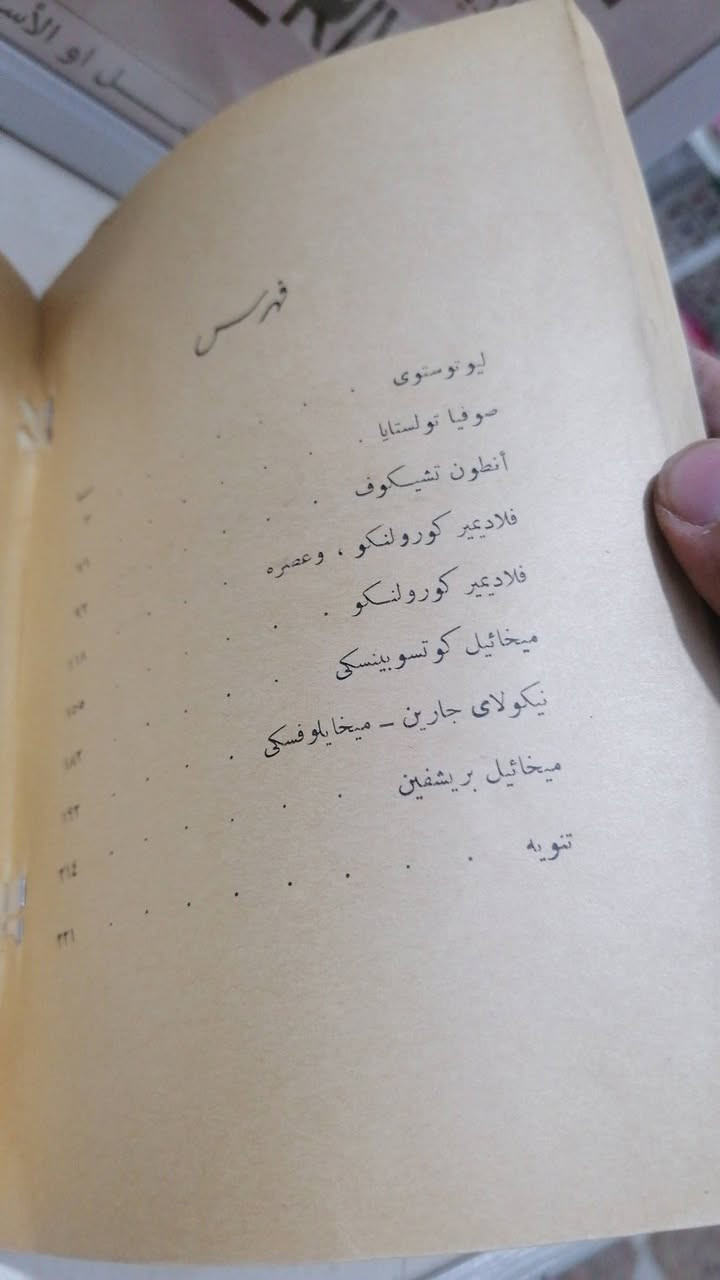 فهرس
ليو توستوى
صوفيا تولستايا
أنطون تشيكوف
فلاديمير كورولنكو ، وعصره . ١١٨
فلاديمير كورولنكو . . . . . ١٥٥
ميخائيل كوتسوبينسكى . . . . ١٨٣
نيكولاى جارين – ميخايلوفسكى . . . . ١٩٣
ميخائيل بريشفين . . . . . . ٢١٤
تنويه . . . . . . . . ٢٢١